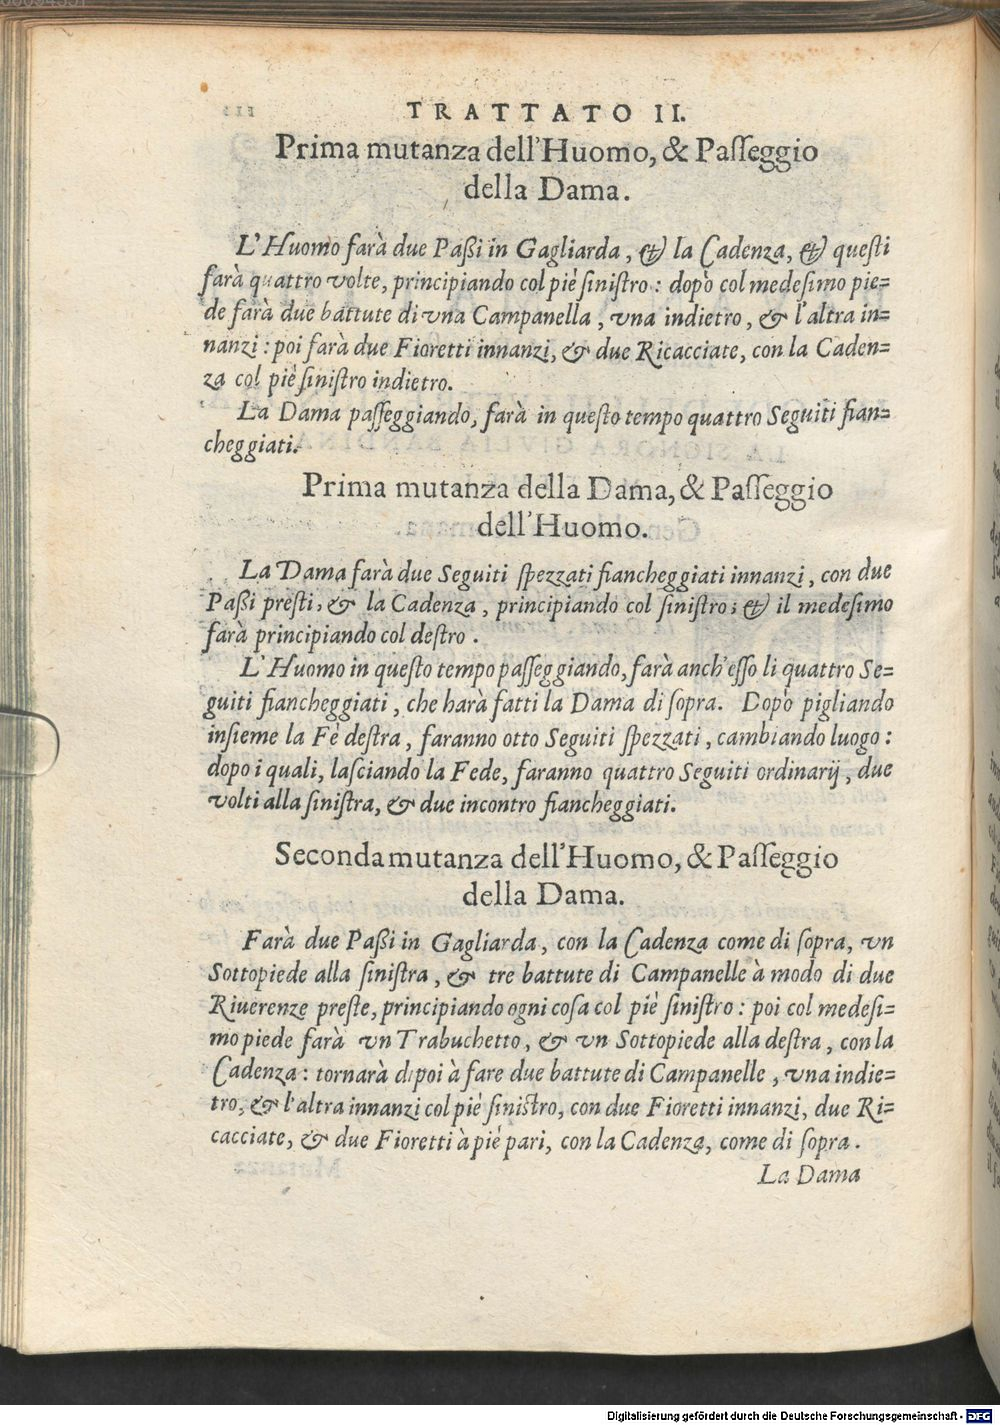 TRATTATO II.
Prima mutanza dell'Huomo, & Paſſeggio
della Dama.
L'Huomo farà due Paßi in Gagliarda, & la Cadenza, & queſti
farà quattro volte, principiando col piè ſiniſtro: dopò col medeſimo pie=
de farà due battute di vna Campanella, vna indietro, & l'altra in=
nanzi: poi farà due Fioretti innanzi, & due Ricacciate, con la Caden=
za col piè ſiniſtro indietro.
La Dama paſſeggiando, farà in queſto tempo quattro Seguiti fian=
cheggiati.
Prima mutanza della Dama, & Paſſeggio
dell'Huomo.
La Dama farà due Seguiti ſpezzati fiancheggiati innanzi, con due
Paßi preſti, & la Cadenza, principiando col ſiniſtro; & il medeſimo
farà principiando col deſtro.
L'Huomo in queſto tempo paſſeggiando, farà anch'eſſo li quattro Se=
guiti fiancheggiati, che harà fatti la Dama di ſopra. Dopò pigliando
inſieme la Fè deſtra, faranno otto Seguiti ſpezzati, cambiando luogo:
dopo i quali, laſciando la Fede, faranno quattro Seguiti ordinarij, due
volti alla ſiniſtra, & due incontro fiancheggiati.
Seconda mutanza dell'Huomo, & Paſſeggio
della Dama.
Farà due Paßi in Gagliarda, con la Cadenza come di ſopra, vn
Sottopiede alla ſiniſtra, & tre battute di Campanelle à modo di due
Riuerenze preſte, principiando ogni coſa col piè ſiniſtro: poi col medeſi=
mo piede farà vn Trabuchetto, & vn Sottopiede alla deſtra, con la
Cadenza: tornarà dipoi à fare due battute di Campanelle, vna indie=
tro, & l'altra innanzi col piè ſiniſtro, con due Fioretti innanzi, due Ri=
cacciate, & due Fioretti à piè pari, con la Cadenza, come di ſopra.
La Dama
Digitalisierung gefördert durch die Deutsche Forschungsgemeinschaft - DFG